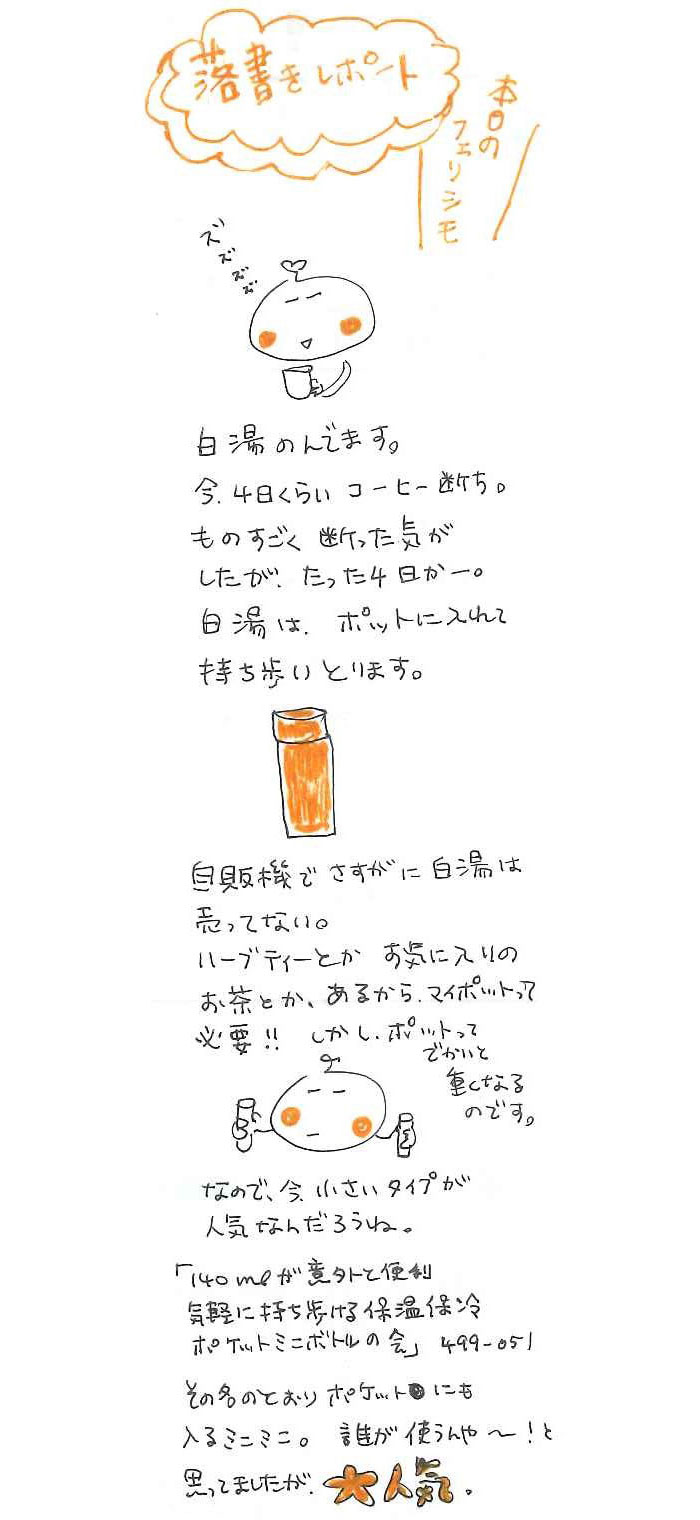 落書きレポート
本日の
フェリシモ
ズズズズ
白湯のんでます。
今、4日くらい コーヒー断ち。
ものすごく 断った気が
したが、たった4日かー。
白湯は、ポットに入れて
持ち歩いとります。
自販機で さすがに 白湯は
売ってない。
ハーブティーとか お気に入りの
お茶とか、あるから、マイポットって
必要!! しかし、ポットって
でかいと
重くなる
のです。
なので、今、小さいタイプが
人気なんだろうね。
「140mlが意外と便利
気軽に持ち歩ける保温保冷
ポケットミニボトルの会」 499-051
その名のとおり ポケットにも
入るミニミニ。 誰が使うんや〜!と
思ってましたが、大人気。